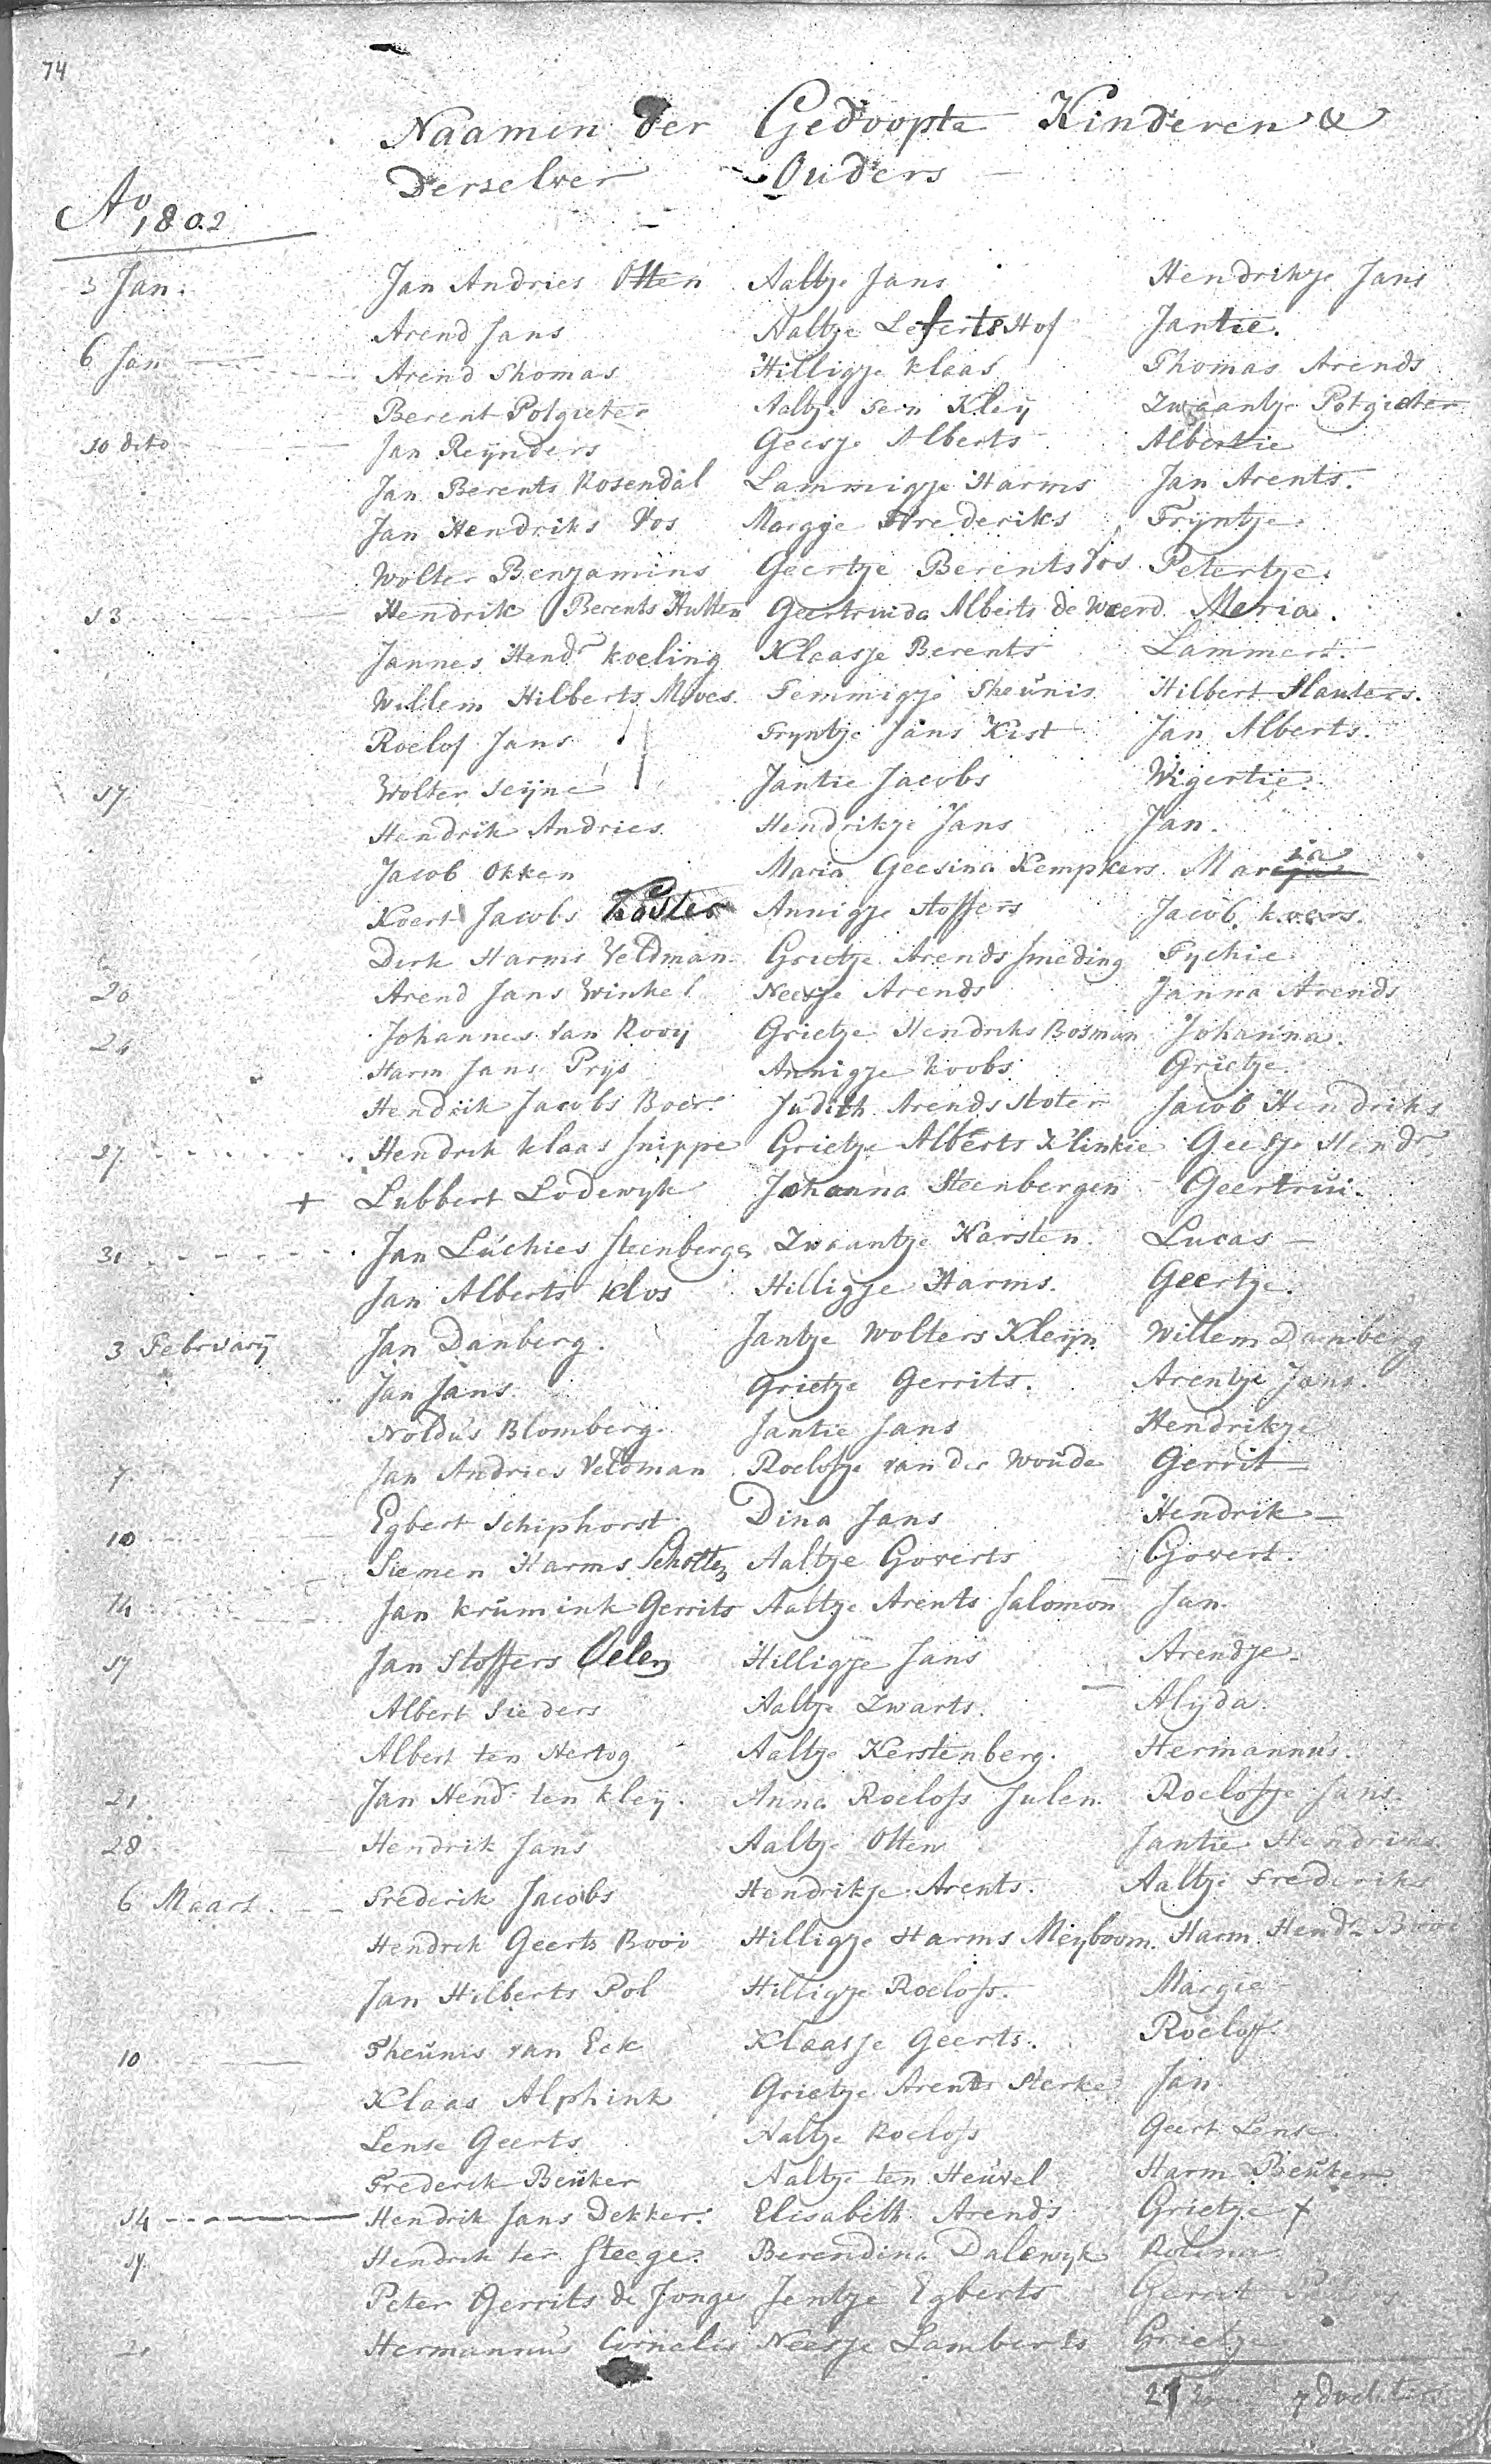 74
Naamen der Gedoopte Kinderen &
derselver Ouders
Ao 1802
3 Jan. Jan Andries Otten Aaltje Jans Hendrikje Jans
Arend Jans Aaltje Leferts Hof Jantie.
6 Jan Arend Thomas Hilligje Klaas Thomas Arends
Berent Potgieter Aaltje Sein Kleij Zwaantje Potgieter
10 dito Jan Reijnders Geesje Alberts Albertie
Jan Berents Rosendal Lammigje Harms Jan Arents.
Jan Hendriks Vos Margje Frederiks Tryntje.
Wolter Benjamins Geertje Berents Vos Petertje.
13 Hendrik Berents Hutten Geertruida Alberts de Weerd Meria.
Jannes Hendr Koeling Klaasje Berents Lammert.
Willem Hilberts Moes. Femmigje Theunis Hilbert Slauters.
Roelof Jans Tryntje Jans Kist Jan Alberts.
17 Wolter Seijne Jantie Jacobs Wigertie.
Hendrik Andries Hendrikje Jans Jan.
Jacob Okken Maria Geesina Kempkers Maria
Koert Jacobs Koster Annigje Stoffers Jacob Koers.
Derk Harms Veldman Grietje Arends Smeding Tychie
20 Arend Jans Winkel Neesje Arends Janna Arends
24 Johannes van Rooy Grietje Hendriks Bosman Johanna.
Harm Jans Prys Annigje Koobs Grietje.
Hendrik Jacobs Boer. Judith Arends Stoter Jacob Hendriks
27 Hendrik Klaas Snippe Grietje Alberts Klinkie Geesje Hendr
+ Lubbert Lodewyk Johanna Steenbergen Geertrui.
31 Jan Luchies Steenbergen Zwaantje Karsten. Lucas
Jan Alberts Klos Hilligje Harms. Geertje.
3 February Jan Danberg. Jantje Wolters Kleijn Willem Danberg
Jan Jans Grietje Gerrits. Arentje Jans.
Noldus Blomberg. Jantie Jans Hendrikje
7 Jan Andries Veldman Roelofje van der Woude Gerrit
Egbert Schiphorst Dina Jans Hendrik
10 Siemen Harms Scholten Aaltje Goverts Govert.
14 Jan Krumink Gerrits Aaltje Arents Salomon Jan.
17 Jan Stoffers Oelen Hilligje Jans Arendje
Albert Sieders Aaltje Zwarts. Alijda.
Albert ten Hertog Aaltje Kerstenberg. Hermannus.
21 Jan Hendr ten Kleij. Anna Roelofs Julen. Roelofje Jans.
28 Hendrik Jans Aaltje Otten Jantie Hendriks
6 Maart. Frederik Jacobs Hendrikje Arents. Aaltje Frederiks
Hendrik Geerts Booi Hilligje Harms Meyboom. Harm Hendr Booi
Jan Hilberts Pol Hilligje Roelofs. Margie
10 Theunis van Eck Klaasje Geerts. Roelof.
Klaas Alphink Grietje Arents Sterke Jan
Lense Geerts Aaltje Roelofs Geert Lense
Frederik Beuker Aaltje ten Heuvel Harm Beuker
14 Hendrik Jans Dekker. Elisabeth Arends Grietje +
17 Hendrik ter Steege. Berendina Dalewyk Rolina
Peter Gerrits de Jonge Jentje Egberts Gerrit Peters
21 Hermannus Cornelis Neesje Lamberts Grietje